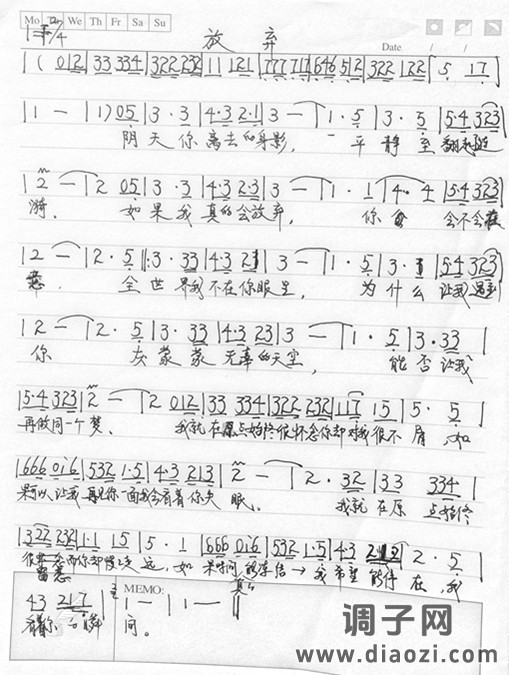 Mo Tu We Th Fr Sa Su
放弃
Date / /
|( 012|33 334|322 232|11 121|777 717|646 512|322 122|5 17|
|1 — |1) 05|3·3|4·3 2·1|3 — |1·5|3·5|5·4 323|
阴天你离去的身影, 一平静至
|2 — |2 05|3·3|4·3 2·3|3 — |1·1|4·4|5·4 323|
漪. 如果我真的会放弃, 你 会不会在
|2 — |2·5|:3·33|4·3 21|3 — |1·5|3·1|5·4 323|
意. 全世界我不在你眼里, 为什么让我遇到
|2 — |2·5|3·33|4·3 23|3 — |1·5|3·33|
你 灰蒙蒙无辜的天空, 能否让我
|5·4 323|2 — |2 012|33 334|322 232|117 15|5·5|
再做同一个梦. 我就在原点始终很怀念你却对我很不屑,如
|666 016|532 1·5|43 213|2 — |2·32|33 334|
果可以让我再见你一面我会看着你失眠. 我就在原点始终
|322 232|1·1 15|5·1|666 016|532 1·5|43 212|2·5|
很 而你却慢之走远,如果时间能冻结→我希望能停在,我
留恋 真的
43 217|1 — |1 — ||
看你的瞬间。
MEMO:
调子网
www.diaozi.com